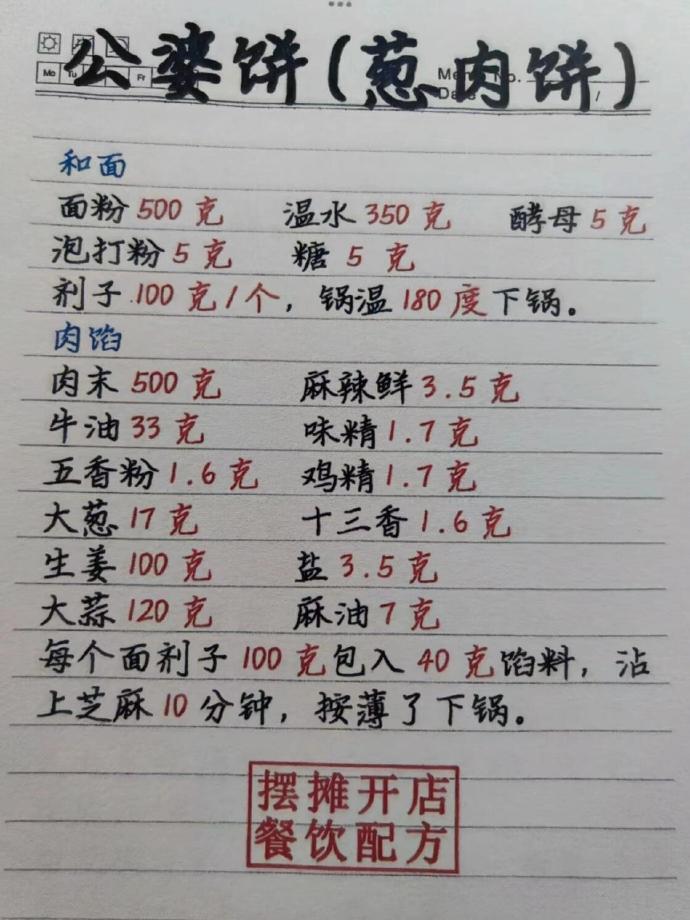 公婆饼(葱肉饼)
Mo Tu Fr
和面
面粉500克 温水350克 酵母5克
泡打粉5克 糖 5 克
剂子100克/个，锅温180度下锅。
肉馅
肉末500克 麻辣鲜3.5克
牛油33克 味精1.7克
五香粉1.6克 鸡精1.7克
大葱17克 十三香1.6克
生姜100克 盐3.5克
大蒜120克 麻油7克
每个面剂子100克包入40克馅料，沾
上芝麻10分钟，按薄了下锅。
摆摊开店
餐饮配方